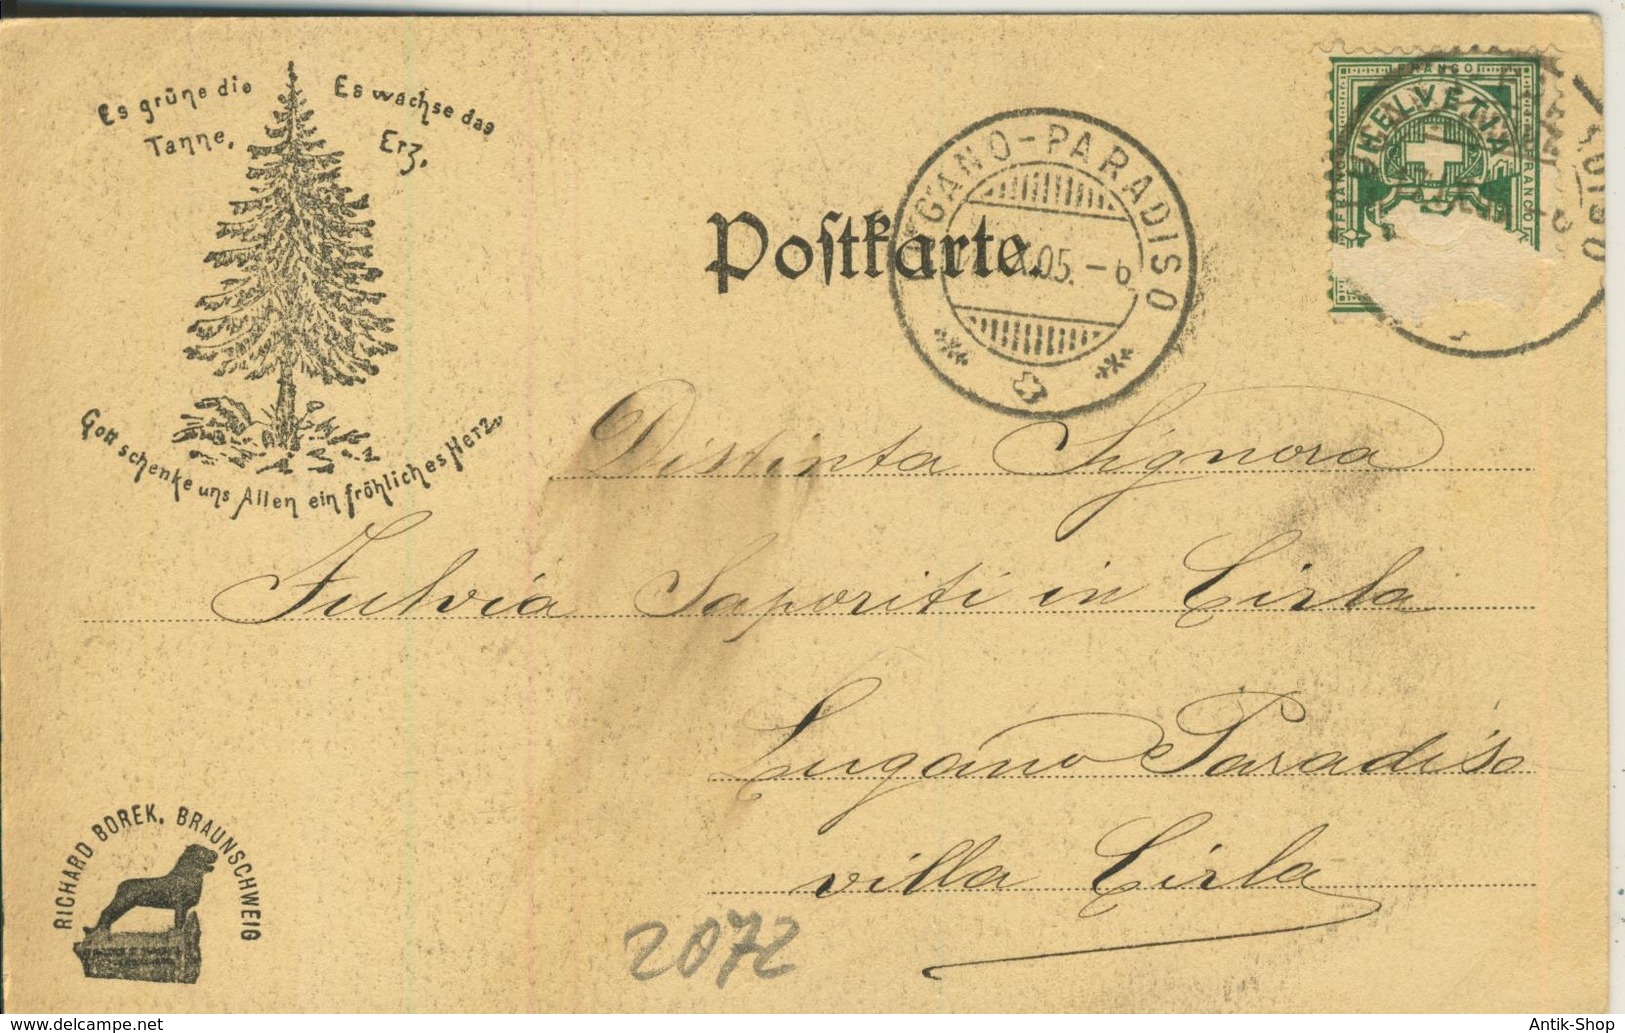 Es grüne die
Tanne.
Es wachse das
Erz.
Gott schenke uns Allen ein fröhliches Herz.
Postkarte.
LUGANO-PARADISO
X.05.-6
FRANCO
HELVETIA
FRANCO
FRANCO
Distinta Signora
Fulvia Saporiti in Cirla
Lugano Paradiso
villa Cirla
RICHARD BOREK, BRAUNSCHWEIG
2072
Antik-Shop